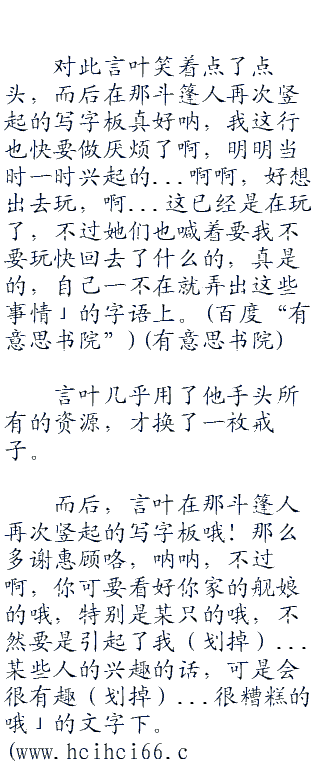 对此言叶笑着点了点
头，而后在那斗篷人再次竖
起的写字板真好呐，我这行
也快要做厌烦了啊，明明当
时一时兴起的...啊啊，好想
出去玩，啊...这已经是在玩
了，不过她们也喊着要我不
要玩快回去了什么的，真是
的，自己一不在就弄出这些
事情」的字语上。(百度“有
意思书院”)(有意思书院)
言叶几乎用了他手头所
有的资源，才换了一枚戒
子。
而后，言叶在那斗篷人
再次竖起的写字板哦！那么
多谢惠顾咯，呐呐，不过
啊，你可要看好你家的舰娘
的哦，特别是某只的哦，不
然要是引起了我（划掉）...
某些人的兴趣的话，可是会
很有趣（划掉）...很糟糕的
哦」的文字下。
(www.hcihci66.c